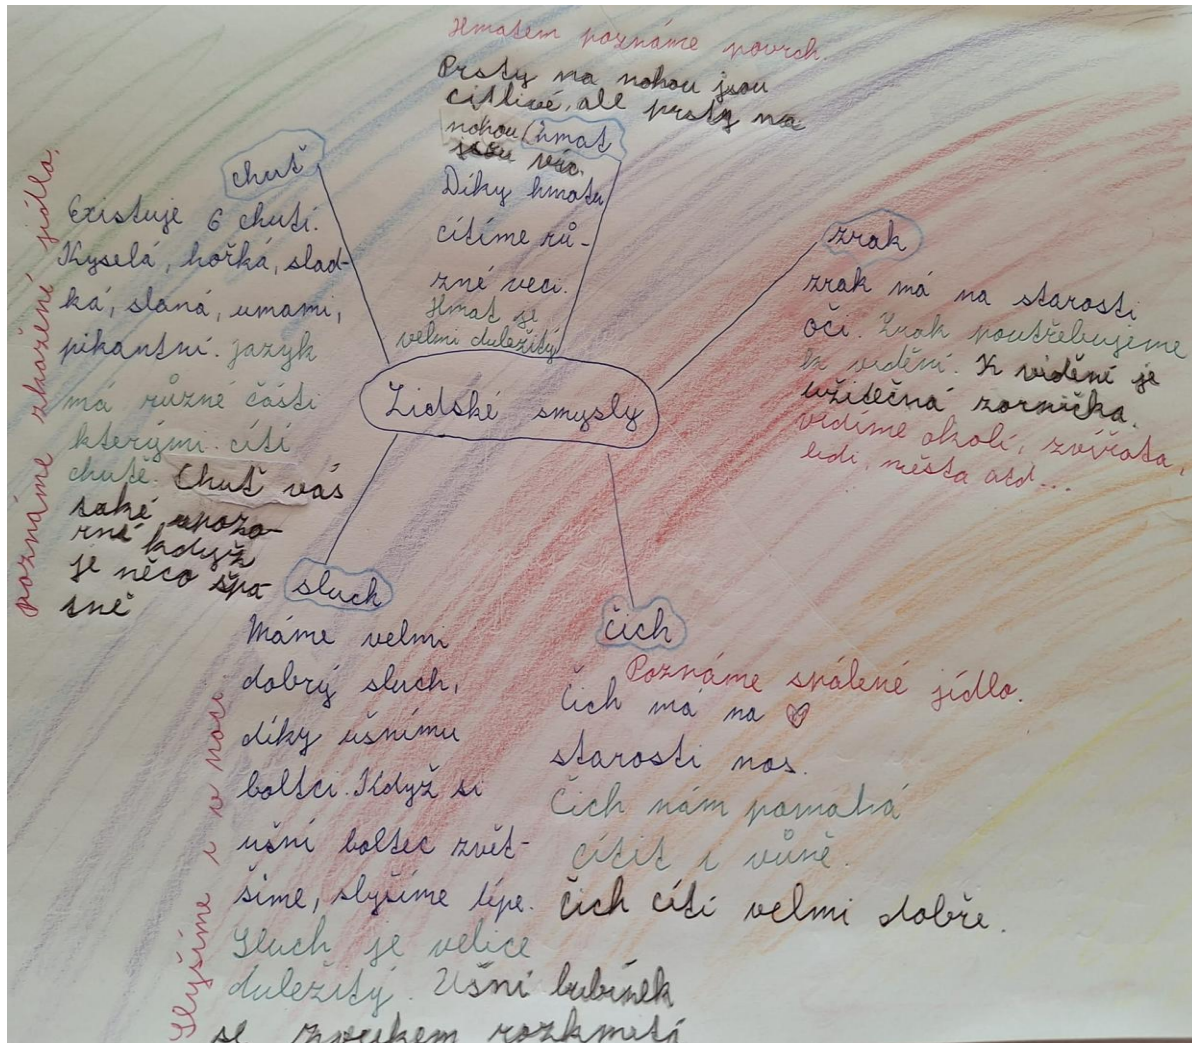 Hmatem poznáme povrch.
Prsty na nohou jsou
citlivé, ale prsty na
nohou hmat
jsou víc.
Díky hmatu
cítíme rů-
zné veci.
Hmat je
velmi duležitý
chuť
Existuje 6 chutí.
Kyselá, hořká, slad-
ká, slaná, umami,
pikantní. jazyk
má různé části
kterými cítí
chutě. Chuť vás
také upozo-
rní když
je něco špa-
tně
poznáme zkažené jídlo.
zrak
zrak má na starosti
oči. Zrak poutřebujeme
k vidění. K vidění je
užitečná zornička.
vidíme okolí, zvířata,
lidi, města atd...
Lidské smysly
sluch
Máme velmi
dobrý sluch,
díky ušnímu
boltci. Když si
ušní boltec zvět-
šíme, slyšíme lépe.
Sluch je velice
duležitý. Ušní bubínek
se zvukem rozkmitá
Slyšíme i v noci
čich
Poznáme spálené jídlo.
čich má na
starosti nos.
Čich nám pomahá
cítit i vůně.
čich cítí velmi dobře.